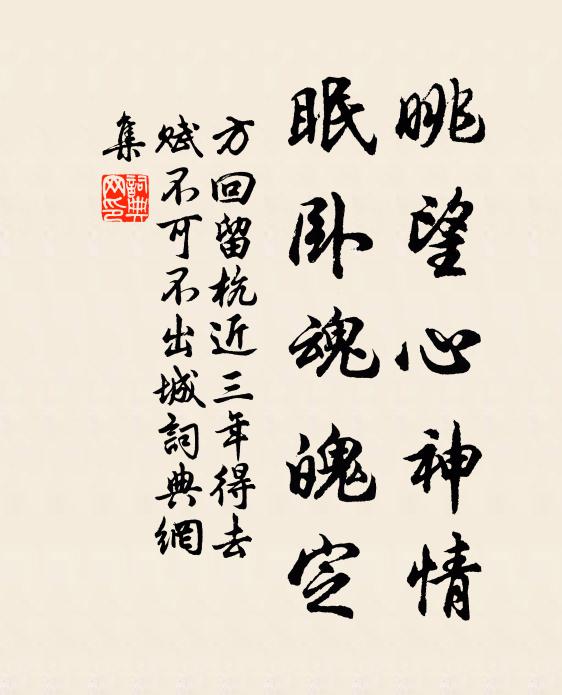 眺望心神情
眠卧魂魄定
方回留杭近三年得去
賦不可不出城詞典網
集
詞典
网印